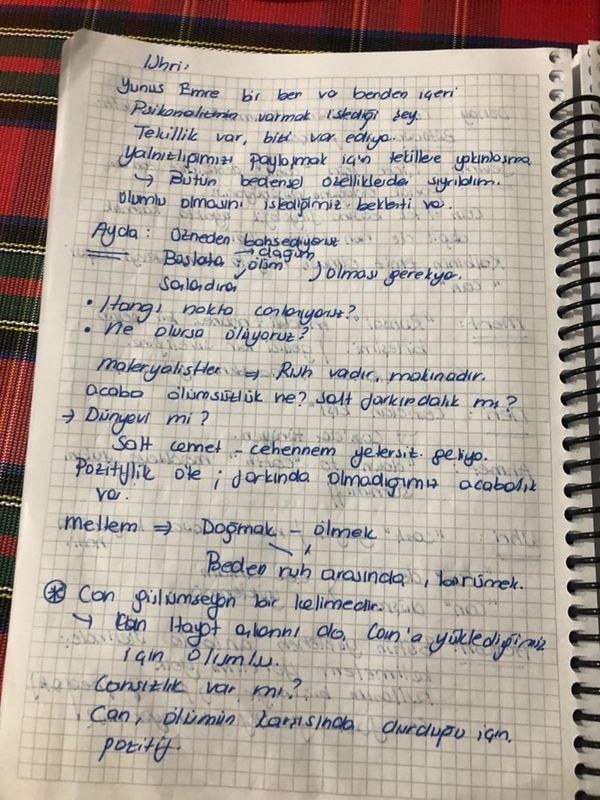 Uhri:
Yunus Emre bir ben va benden içeri
Psikanalizmin varmak istediği şey.
Tekillik var, bizi var ediyo.
Yalnızlığımızı paylaşmak için tekillere yakınlaşma.
→ Bütün bedensel özelliklerden sıyrıldım.
olumlu olmasını istediğimiz beklenti va.
Ayda: Özneden bahsediyoruz
Başlata → doğum
ölüm } olması gerekyo.
Sonlandıran
• Hangi nokta canlanıyoruz?
• Ne olursa ölüyoruz?
materyalistler ⇒ Ruh vadır, makinadır.
acaba ölümsüzlük ne? salt farkındalık mı?
→ Dünyevi mi?
Salt cennet - cehennem yetersiz geliyo.
Pozitiflik öte ; farkında olmadığımız acabalık
va.
meltem ⇒ Doğmak - ölmek
Beden ruh arasında, bürümek.
* Can gülümseyen bir kelimedir.
→ Can Hayat anlamını da, Can'a yüklediğimiz
için olumlu.
Cansızlık var mı?
Can, ölümün karşısında durduğu için,
pozitif.